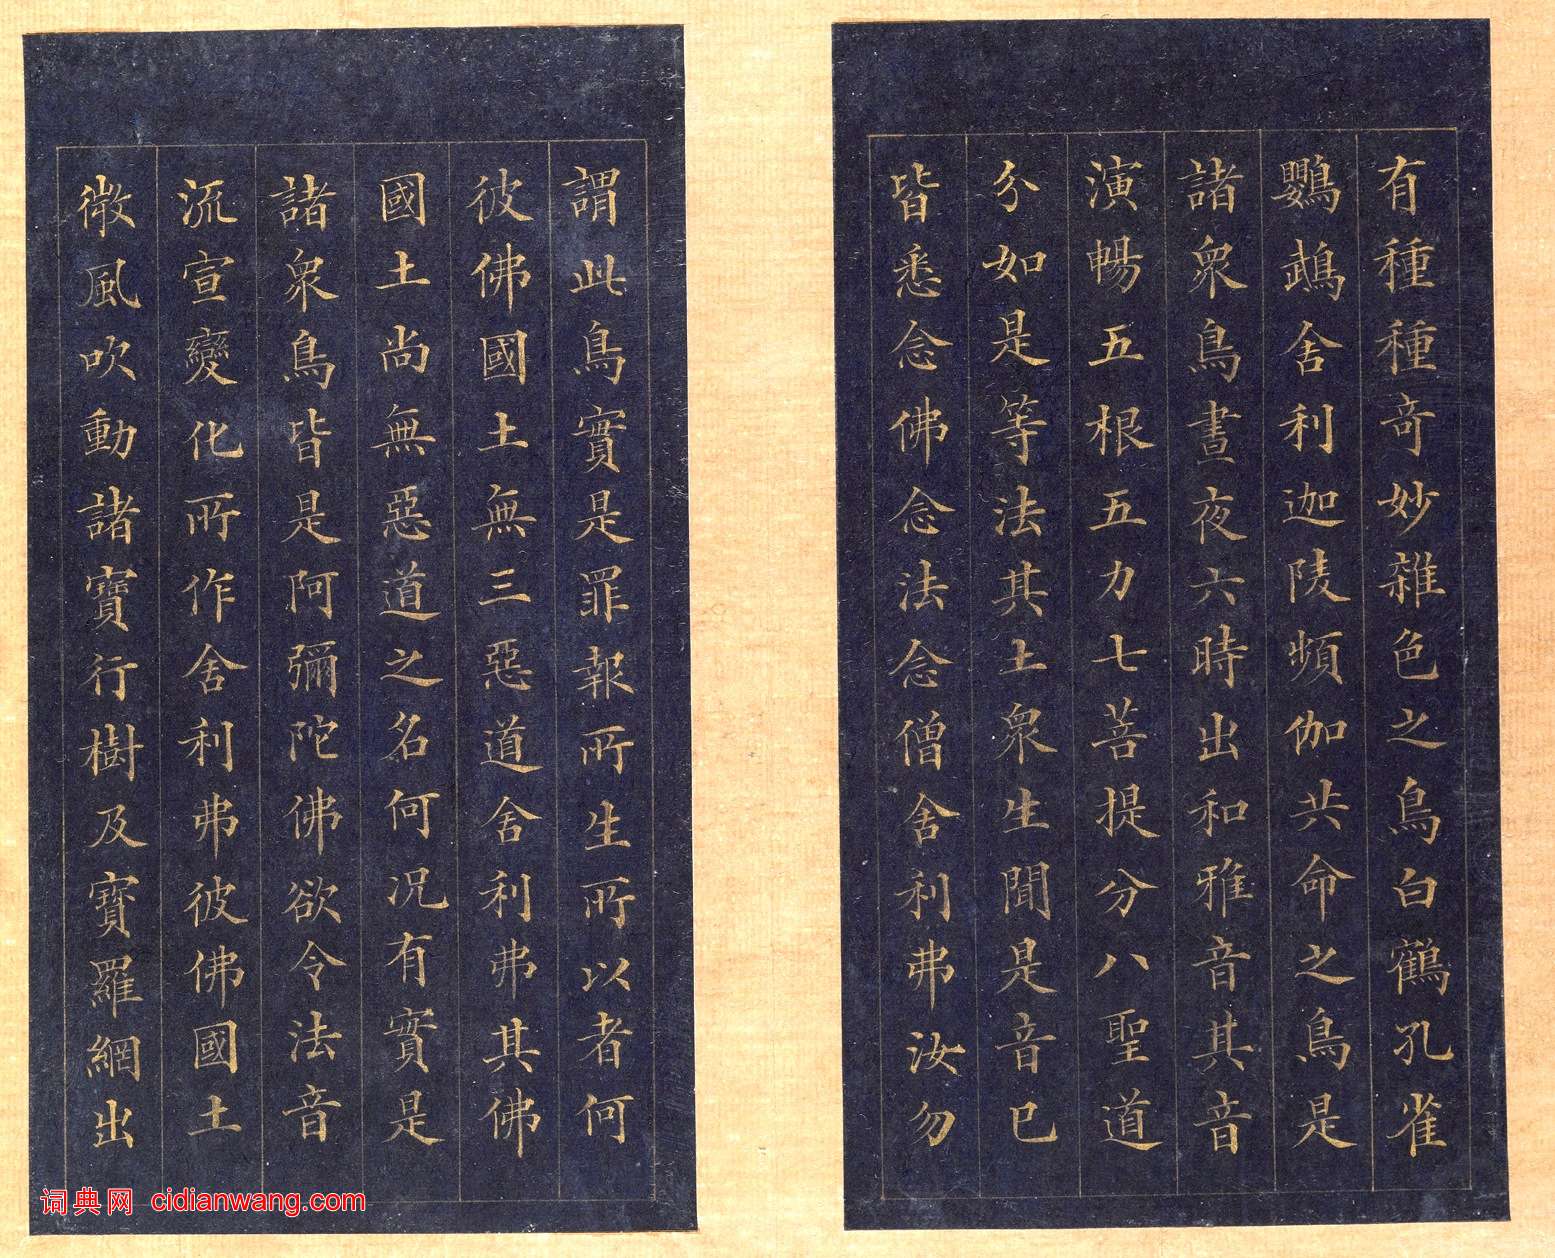 有種種奇妙雜色之鳥白鶴孔雀
鸚鵡舍利迦陵頻伽共命之鳥是
諸衆鳥晝夜六時出和雅音其音
演暢五根五力七菩提分八聖道
分如是等法其土衆生聞是音已
皆悉念佛念法念僧舍利弗汝勿
謂此鳥實是罪報所生所以者何
彼佛國土無三惡道舍利弗其佛
國土尚無惡道之名何況有實是
諸衆鳥皆是阿彌陀佛欲令法音
流宣變化所作舍利弗彼佛國土
微風吹動諸寶行樹及寶羅網出
词典网 cidianwang.com